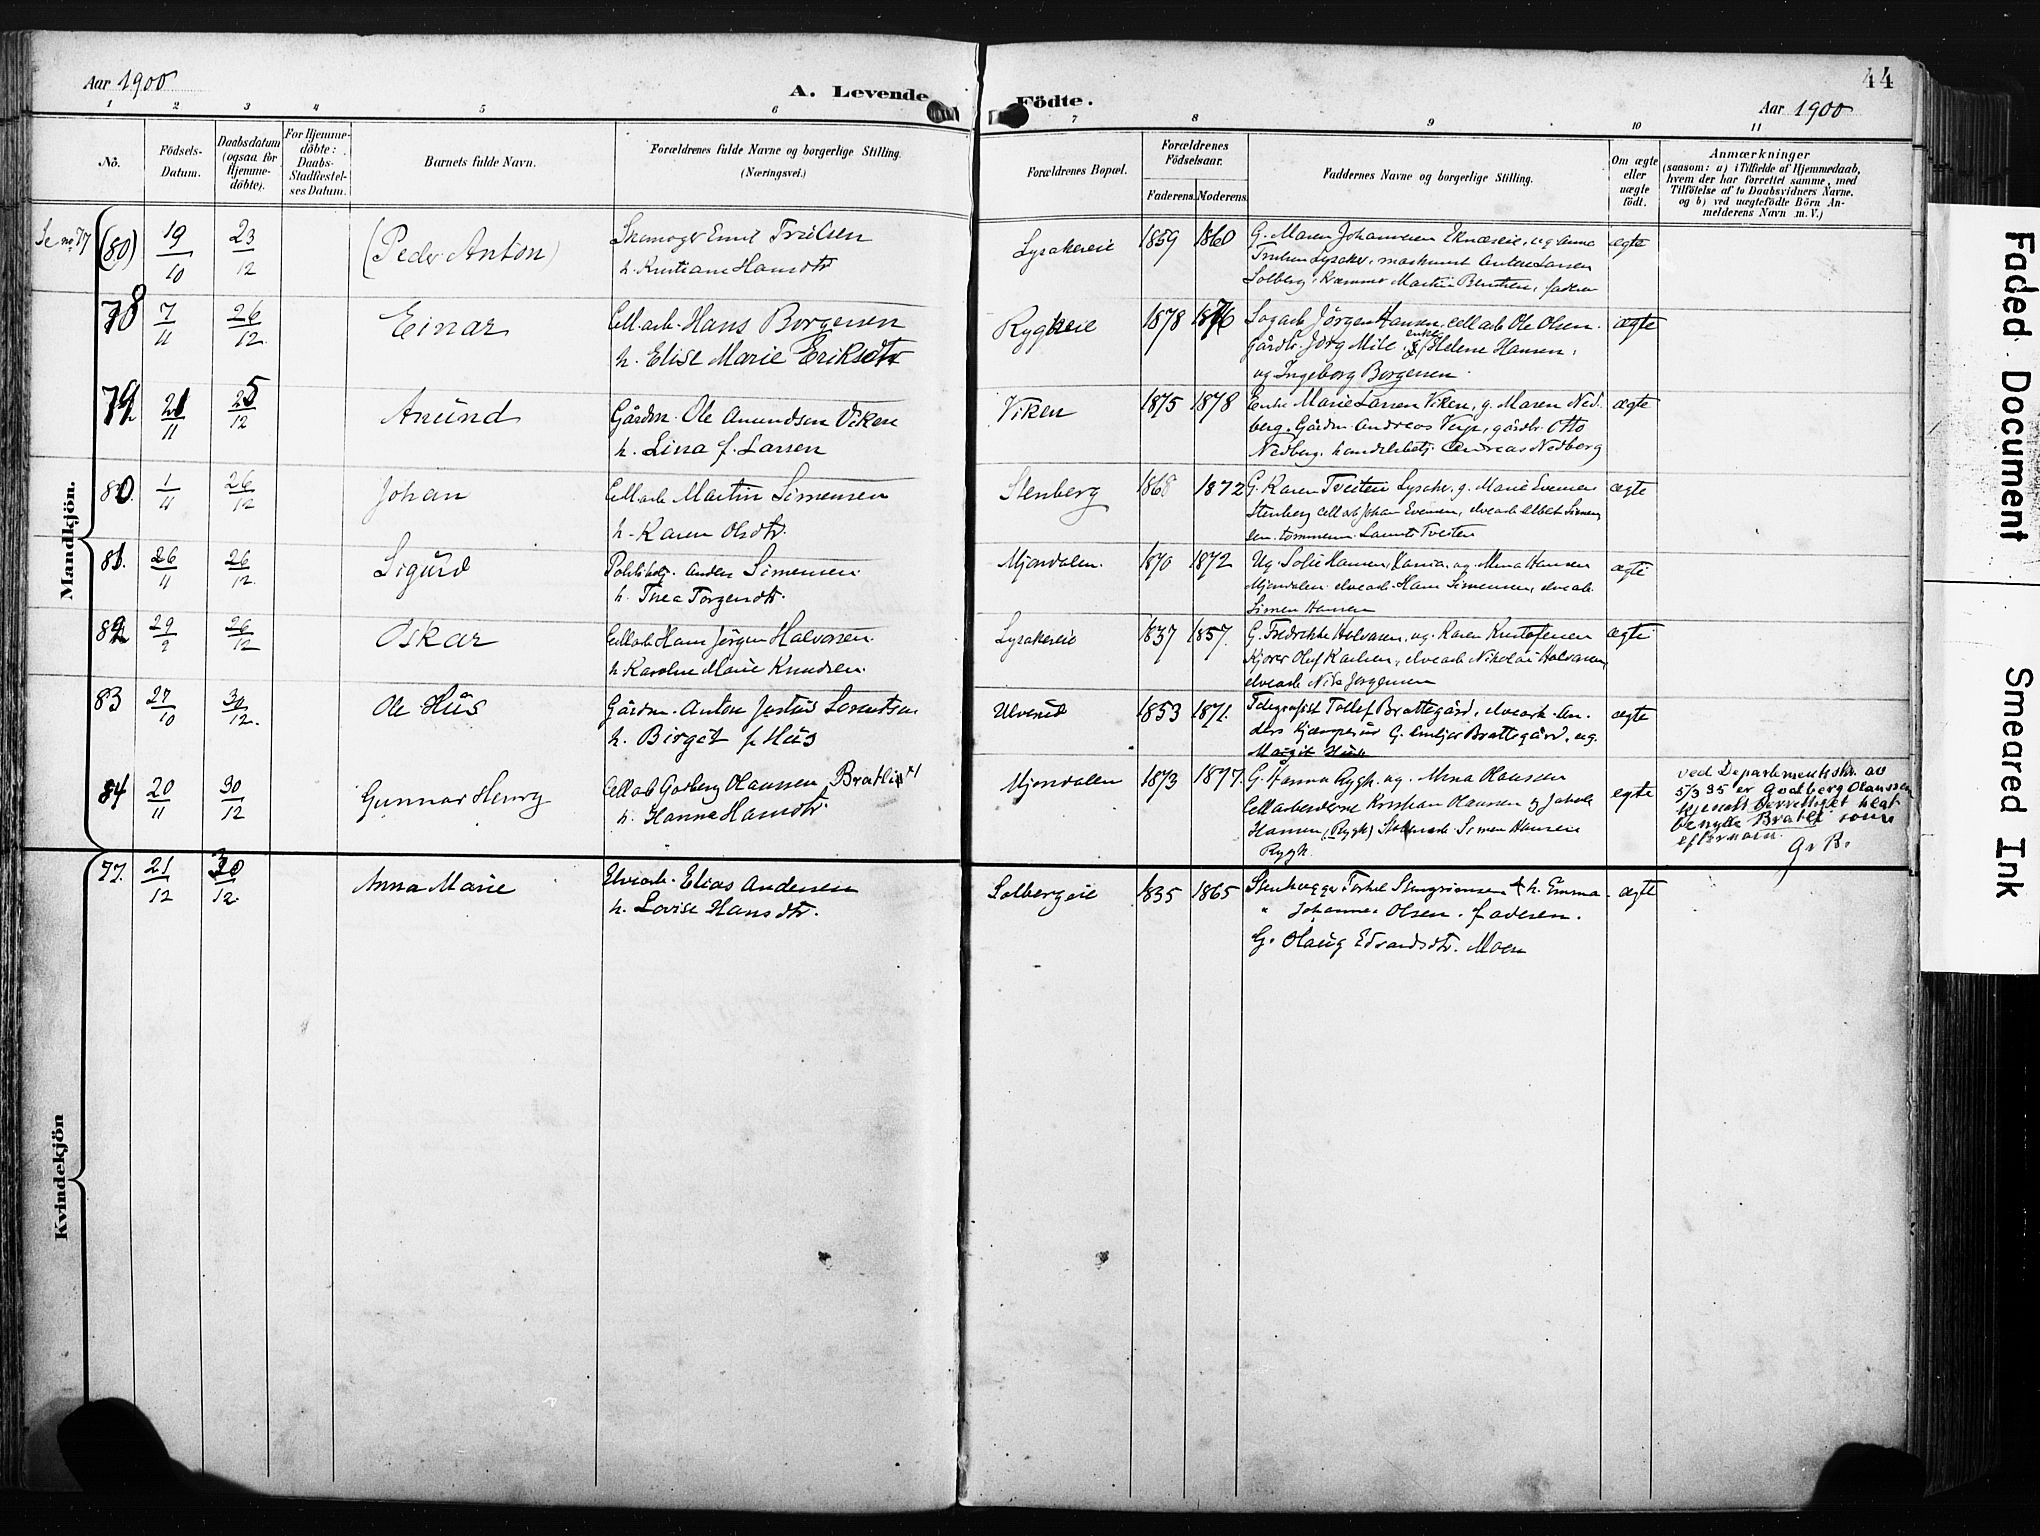 Aar 1900
A. Levende Födte.
44
Aar 1900
1 2 3 4 5 6 7 8 9 10 11
No.
Födsels-Datum.
Daabsdatum (ogsaa for Hjemme-döbte).
For Hjemme-döbte: Daabs-Stadfæstel-ses Datum.
Barnets fulde Navn.
Forældrenes fulde Navne og borgerlige Stilling. (Næringsvei.)
Forældrenes Bopæl.
Forældrenes Födselsaar.
Faderens. Moderens.
Faddernes Navne og borgerlige Stilling.
Om ægte eller uægte födt.
Anmærkninger
(saasom: a) i Tilfælde af Hjemmedaab,
hvem der har forrettet samme, med
Tilföielse af to Daabsvidners Navne,
og b) ved uægtefödte Börn An-
melderens Navn m. V.)
Mandkjön.
Se no 77 (80) 19/10 23/12 (Peder Anton)
Skomager Emil Truelsen
h. Kristiane Hansdtr
Lysakereie 1859 1860
G. Maren Johannesen Eknæseie, ug. Anna
Truelsen Lysaker, maskinist Anton Larsen
Solberg, Martin Berntsen, faderen
ægte
78 7/11 26/12 Einar
Cell.arb. Hans Borgersen
h. Elise Marie Eriksdtr
Ryghseie 1878 1876
Sagarb Jørgen Hansen, cellarb Ole Olsen.
gårdbr. Jørg Mile, enke Helene Hansen,
ug Ingeborg Borgersen.
ægte
79 21/11 25/12 Anund
Gårdm. Ole Amundsen Viken
h. Lina f. Larsen
Viken 1875 1878
Enke Marie Larsen Viken, g. Maren Ned-
berg. Gårdm Andreas Veje, gårdbr. Otto
Nedberg. handelsbetj. Andreas Nedberg
ægte
80. 1/11 26/12 Johan
Cellarb Martin Simensen
h. Karen Olsdtr.
Stenberg 1868 1872
G. Karen Tveiten Lysaker, g. Marie Evensen
Stenberg cellarb Johan Evensen, elvearb Albert Simens
sen. tømmerm. Laurits Tveiten
ægte
81. 26/11 26/12. Sigurd
Politibetj. Anders Simensen.
h. Thea Torgersdtr.
Mjøndalen. 1870 1872
Ug. Sofie Hansen, Xania, ug. Mina Hansen
Mjøndalen elvearb. Hans Simensen, elvearb.
Simen Hansen
ægte
82 29/9 26/12 Oskar
Cellarb Hans Jørgen Halvorsen.
h. Karoline Marie Knudsen.
Lysakereie 1837 1857.
G. Fredrikke Halvorsen, ug. Karen Kristofersen
Kjører Olaf Karlsen, elvearb Nikolai Halvorsen,
elvearb Nils Jørgensen
ægte
83 27/10 30/12. Ole Hus
Gårdm. Anton Justus Lorentsen.
h. Birget f. Hus
Ulverud 1853 1871.
Telegrafist Tollef Brattegård, elvearb. An-
ders Kjæmperud G. Emilje Brattegård, ug.
Margit Hus
ægte
84 20/11 30/12 Gunnar Henry
Cellarb Godberg Olaussen Bratlie
h. Hanna Hansdtr.
Mjøndalen 1873 1877.
G. Hanna Rygh. ug. Mina Olaussen
Cellarbeiderne Kristian Olaussen og Jakob
Hansen (Rygh) Simen Hansen
Rygh.
egte
ved Departementskr. av
5/3 35 er Godberg Olaussen
benytte Bratli som
efternavn.
G. B.
Kvindekjön
77. 21/12 30/12. Anna Marie
Elvearb. Elias Andersen
h. Lovise Hansdtr.
Solbergeie 1835 1865
Stenhugger Torkel h. Emma
" Johannes Olsen. faderen.
G. Olaug Edvardsdtr. Moen
ægte
Faded Document
Smeared Ink